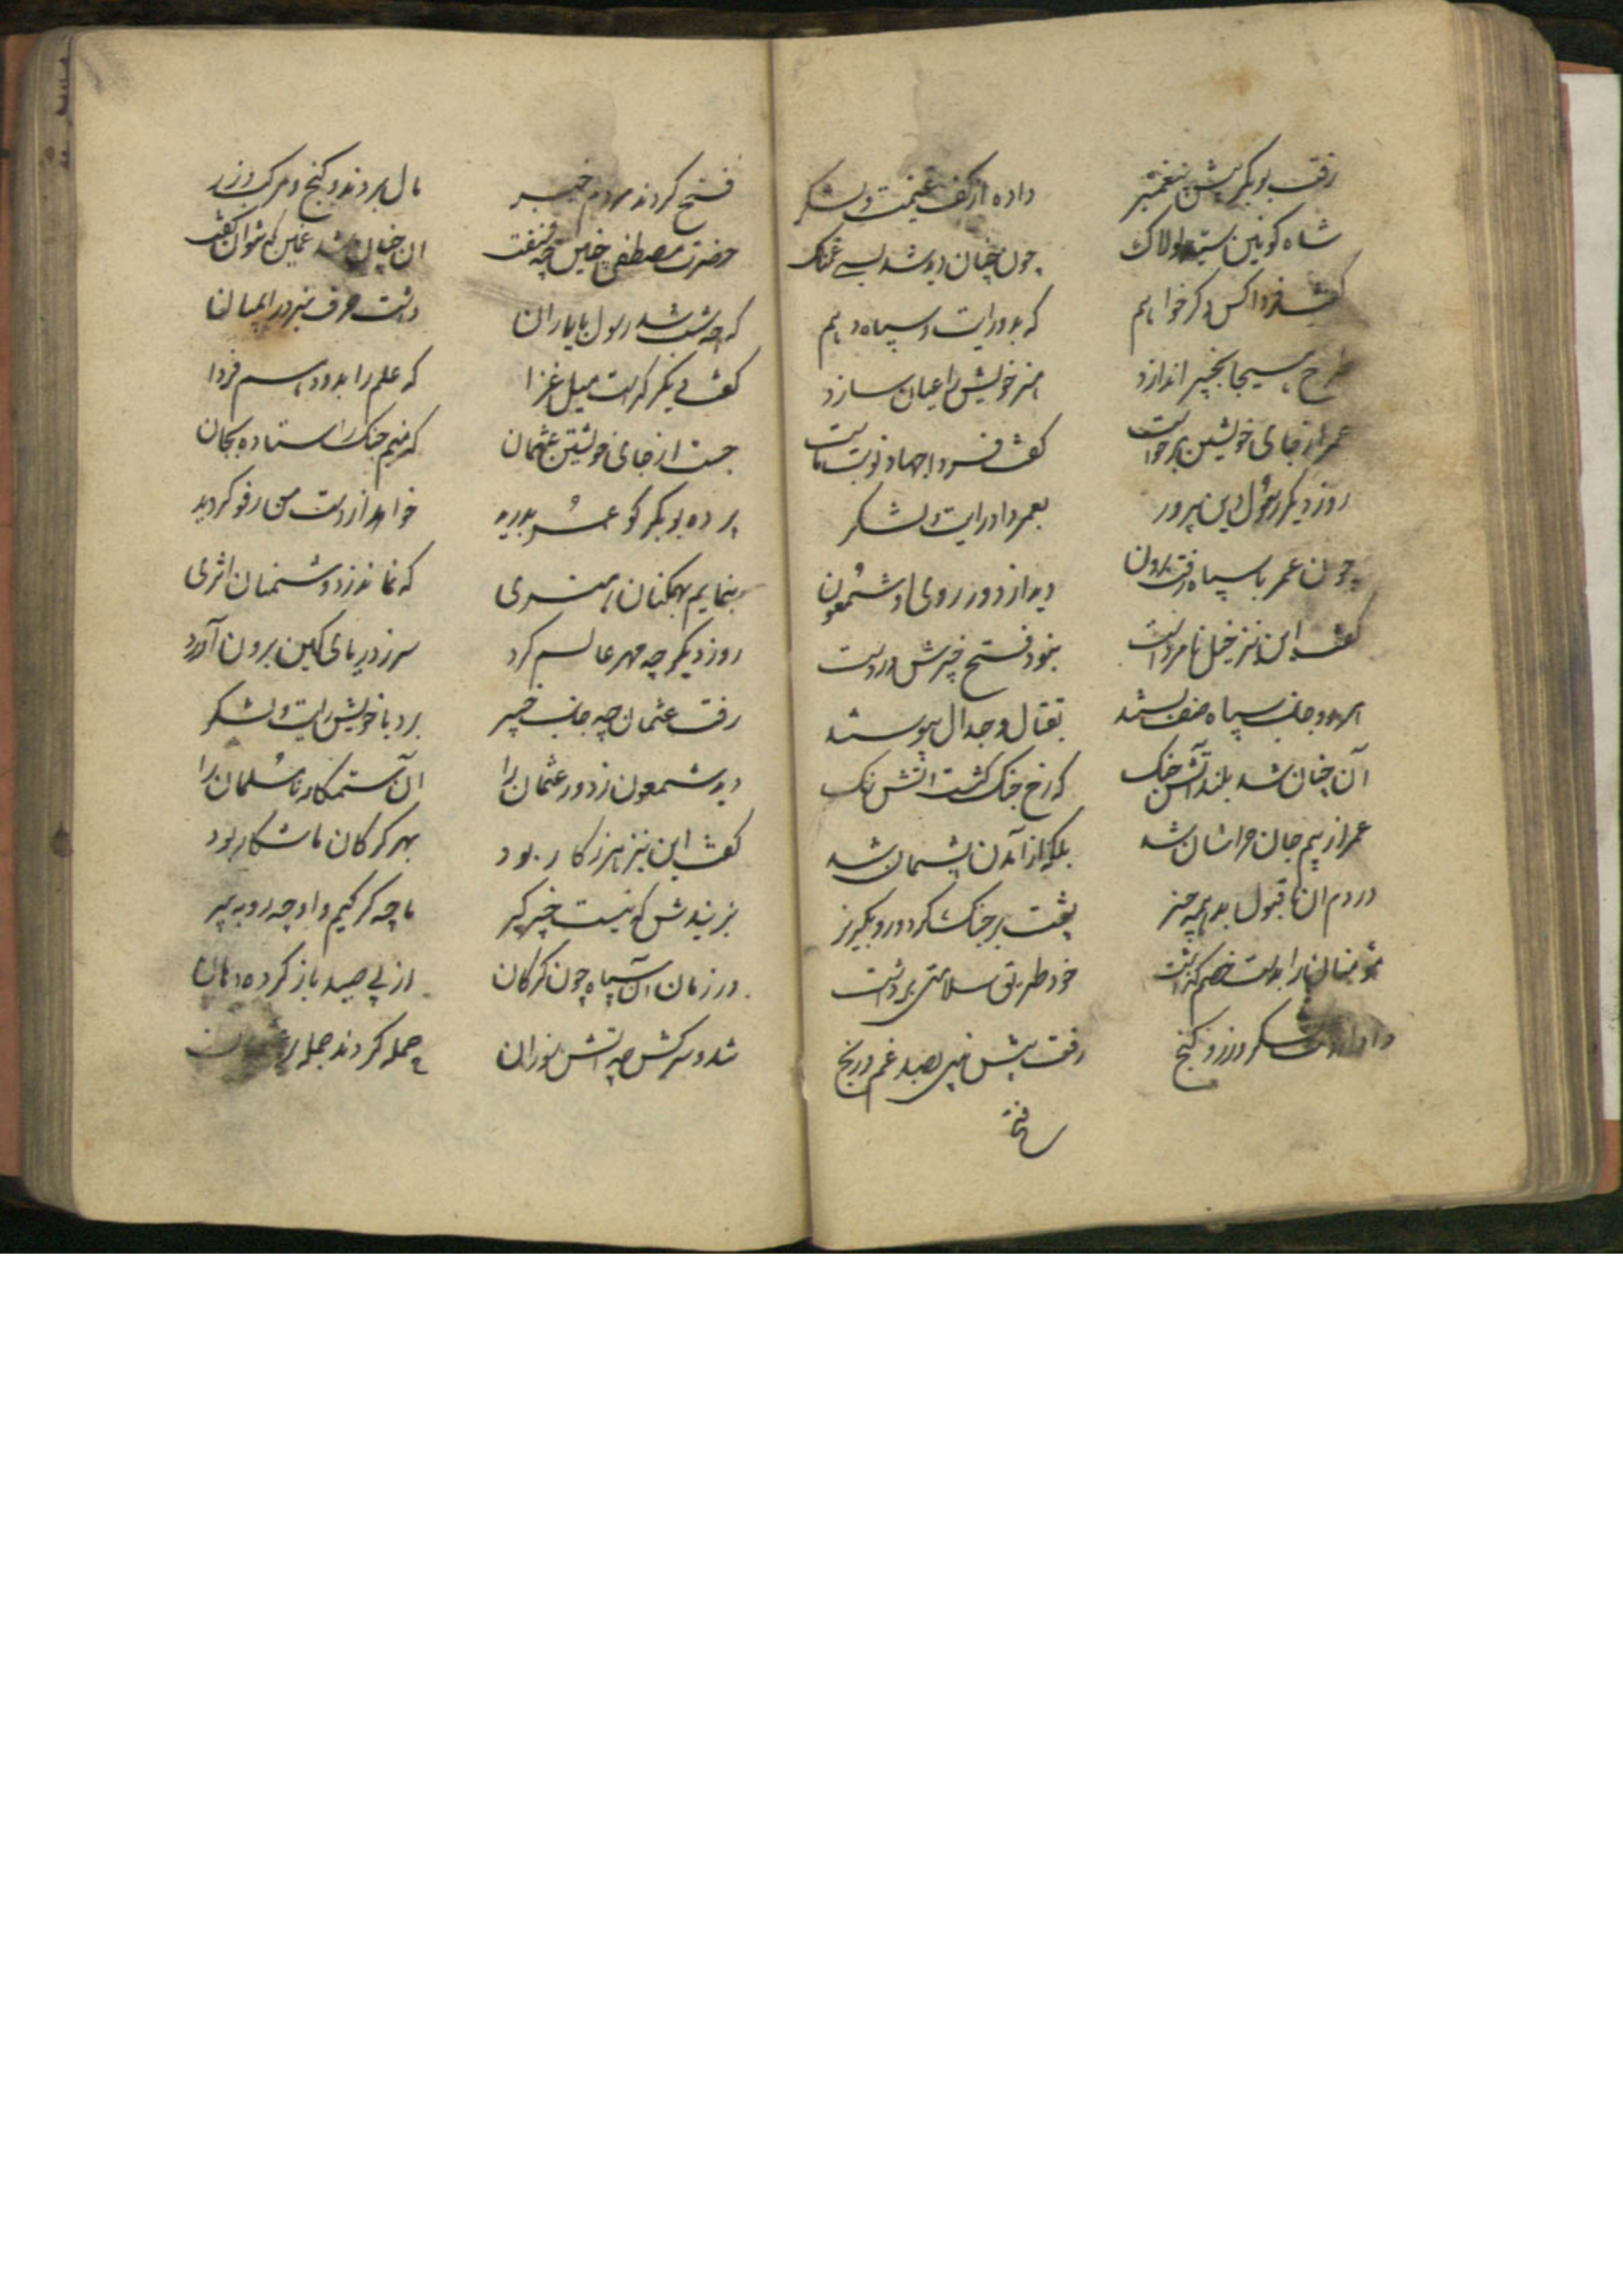 رفت بوبکر پیش پیغمبر
داده از کف غنیمت و لشکر
شاه کونین سید لولاک
چون چنان دید شد بسی غمناک
گفت فردا کس دکر خواهم
که بدو رایت و سپاه دهم
طرح هیجا بخیبر اندازد
هنر خویش را عیان سازد
عمر از جای خویشتن برخواست
گفت فردا جهاد نوبت ماست
روز دیکر رسول دین پرور
بعمر داد رایت و لشکر
چون عمر با سپاه رفت برون
دید از دور روی او شمعون
گفت این نیز خیل نامرد است
نبود فتح خیبرش در دست
هر دو جانب سپاه صف بستند
بقتال و جدال پیوستند
آن چنان شد بلند آتش جنک
که رخ جنک کشت آتش رنک
عمر از بیم جان هراسان شد
بلکه از آمدن پشیمان شد
در دم آن ناقبول بد همه چیز
پشت بر جنک کرد و رو بکریز
مؤمنان را بدست خصم کذاشت
خود طریق سلامتی برداشت
داد از دست لشکر و زر و کنج
رفت پیش نبی بصد غم و رنج
فتح
فتح کردند مردم خیبر
مال بردند و کنج و مرکب و زر
حضرت مصطفی چنین چه شنفت
آن چنان شد غمین که نتوان کفت
که چه شب شد رسول با یاران
داشت حرف نبرد در میان
گفت دیکر کراست میل غزا
که علم را بدو دهم فردا
جست از جای خویشتن عثمان
که منم جنک را ستاده بجان
پرده بوبکر کو عمر بدرید
خواهد از دست من رفو کردید
بنمایم بهمکنان هنری
که نماند ز دشمنان اثری
روز دیکر چه مهر عالم کرد
سر ز دریای کین برون آورد
رفت عثمان چه جانب خیبر
برد با خویش رایت و لشکر
دید شمعون ز دور عثمان را
آن ستمکار نامسلمان را
گفت این نیز هرزه کار بود
بهر کرکان ما شکار بود
بزنیدش که نیست خیبر کیر
ما چه کرکیم و او چه روبه پیر
در زمان آن سپاه چون کرکان
از پی صید باز کرده دهان
شد و سرکش چه آتش سوزان
حمله کردند جمله بر